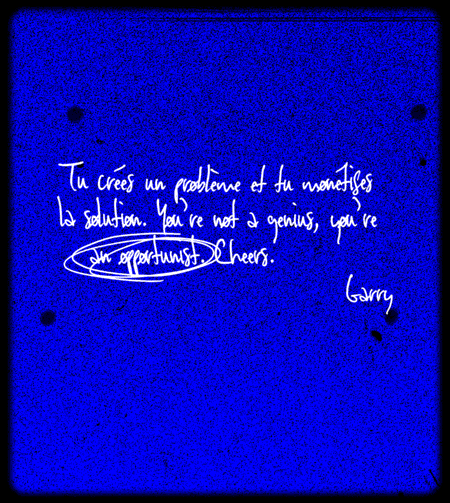 Tu crées un problème et tu monétises
la solution. You're not a genius, you're
an opportunist. Cheers.
Garry